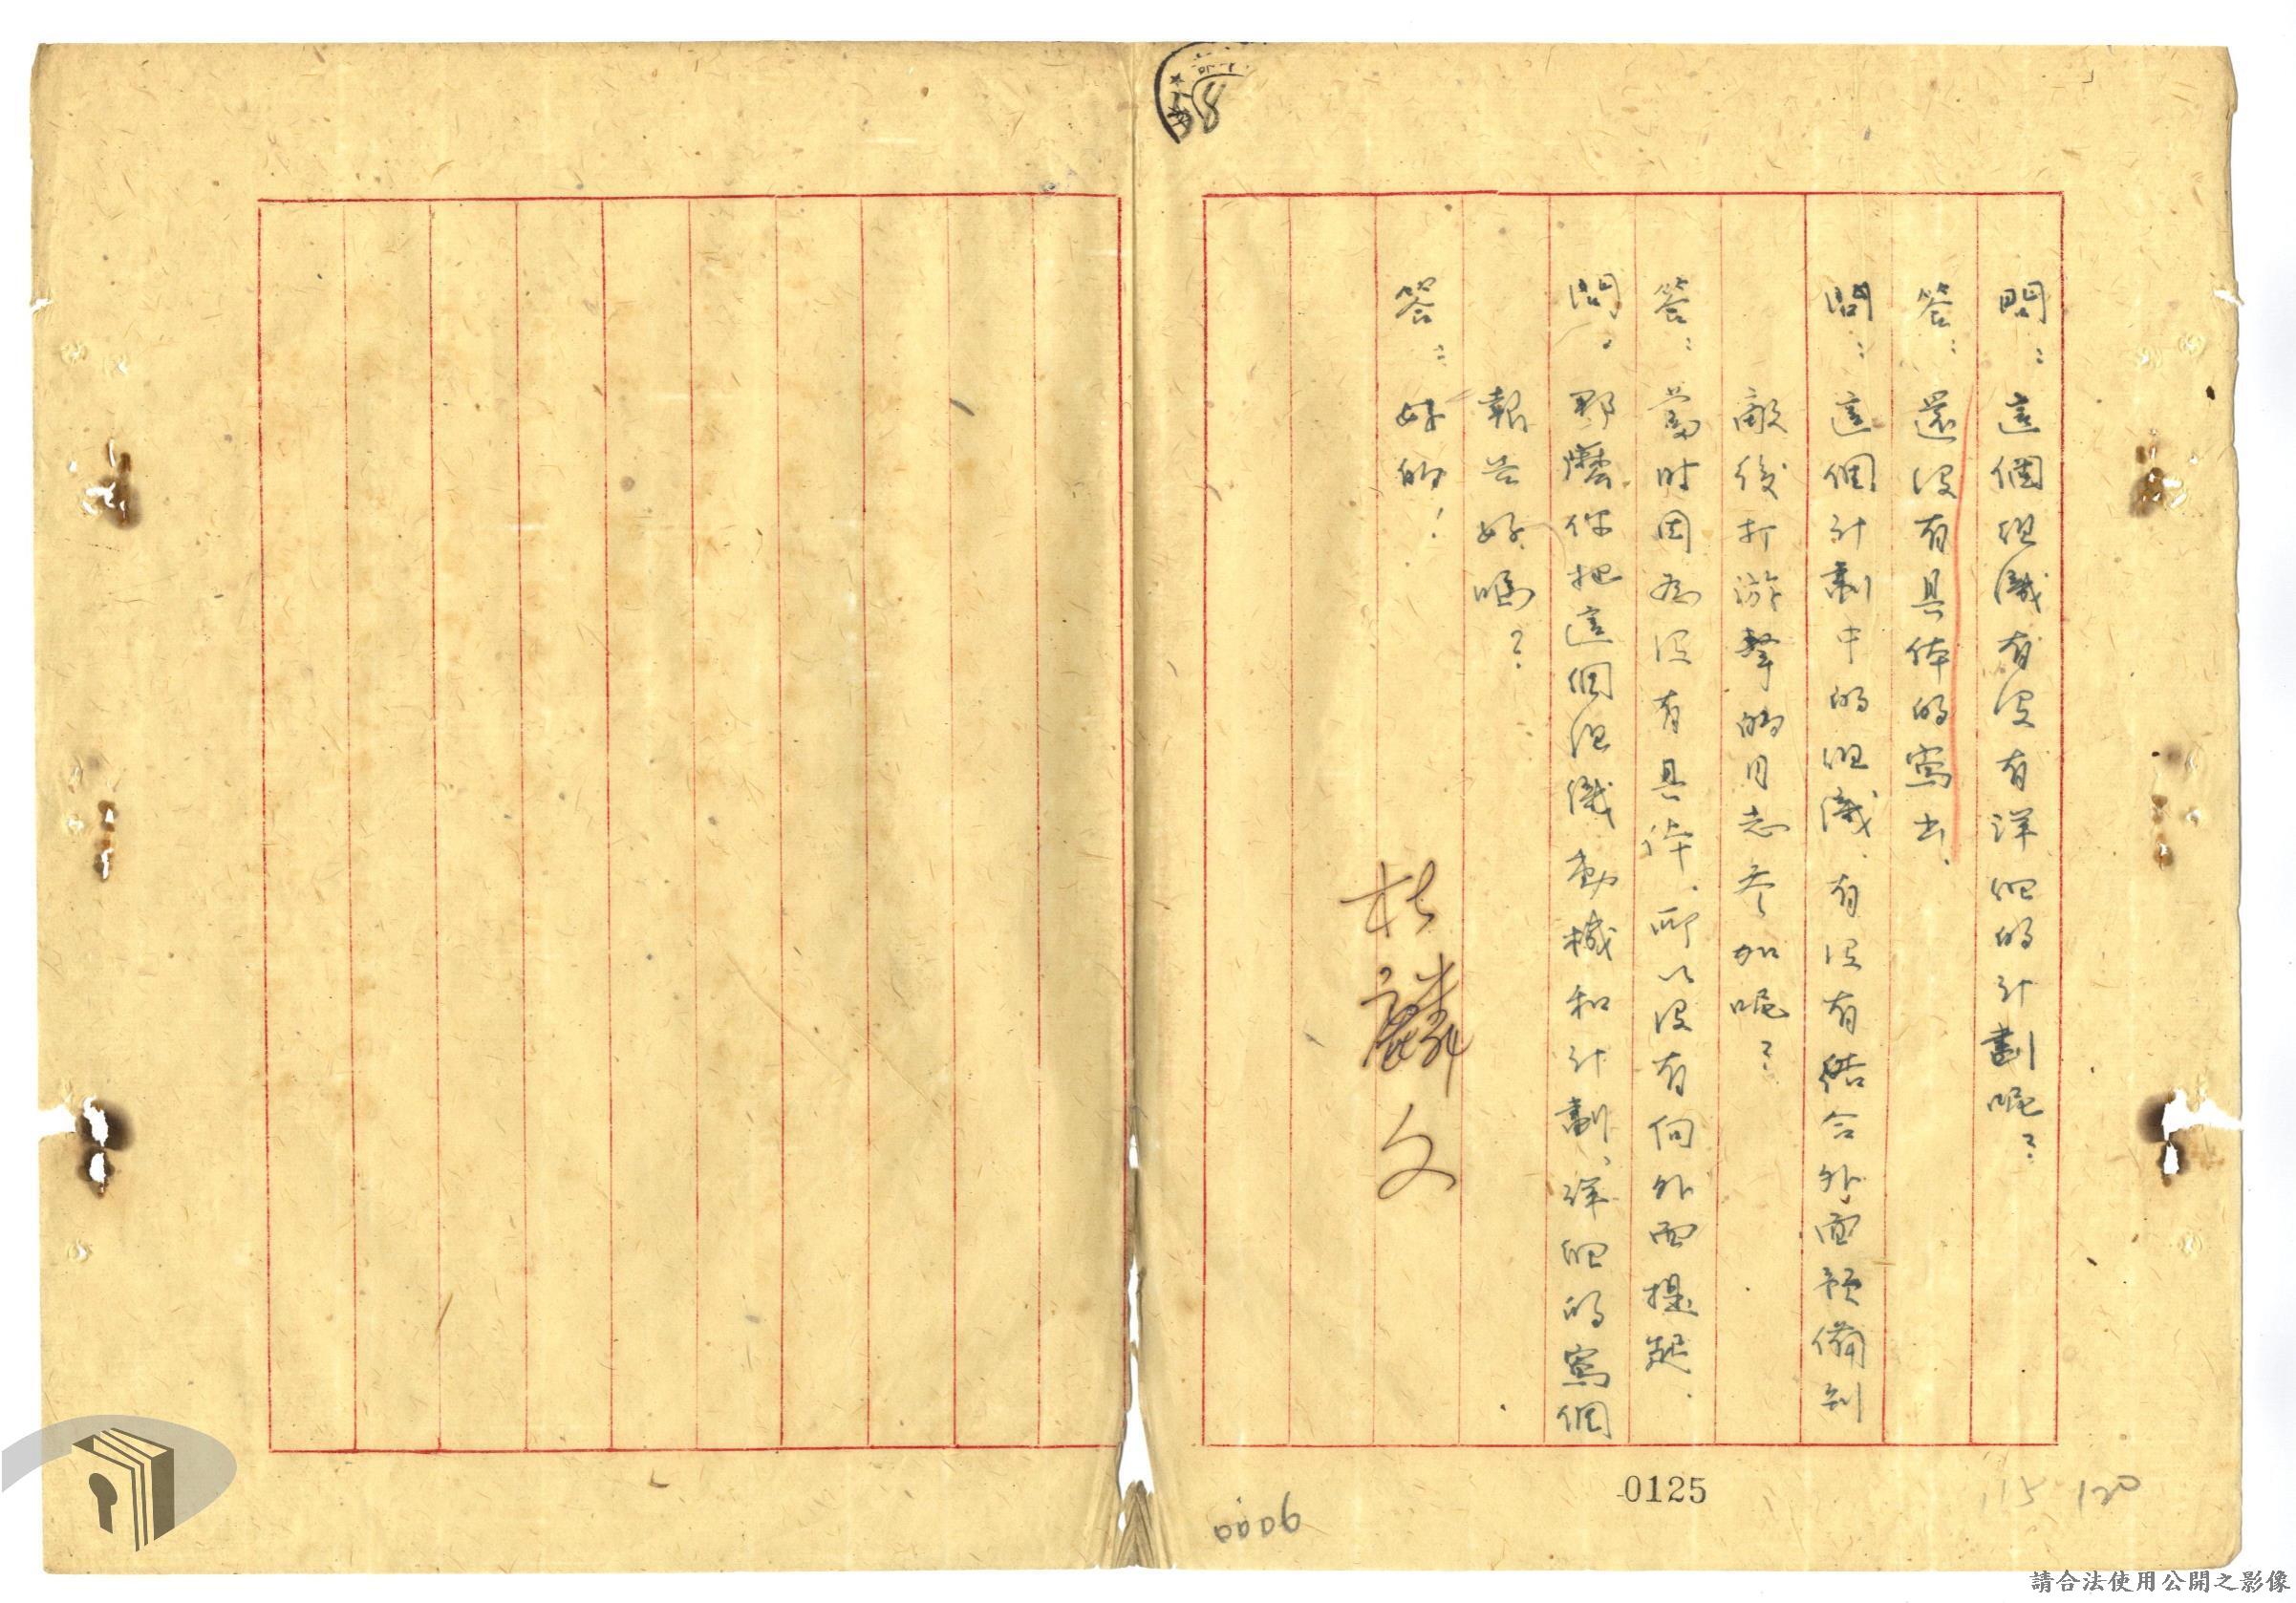 問：這個組織有沒有詳細的計劃呢？
答：還沒有具体的寫出．
問：這個計劃中的組織．有沒有結合外面預備到
敵後打游擊的同志参加呢？
答：當时因為沒有具体．所以沒有向外面提起．
問．那麼你把這個組織動機和計劃、詳細的寫個
報告好嗎？
答：好的！
杜麟文
0125
115 120
請合法使用公開之影像